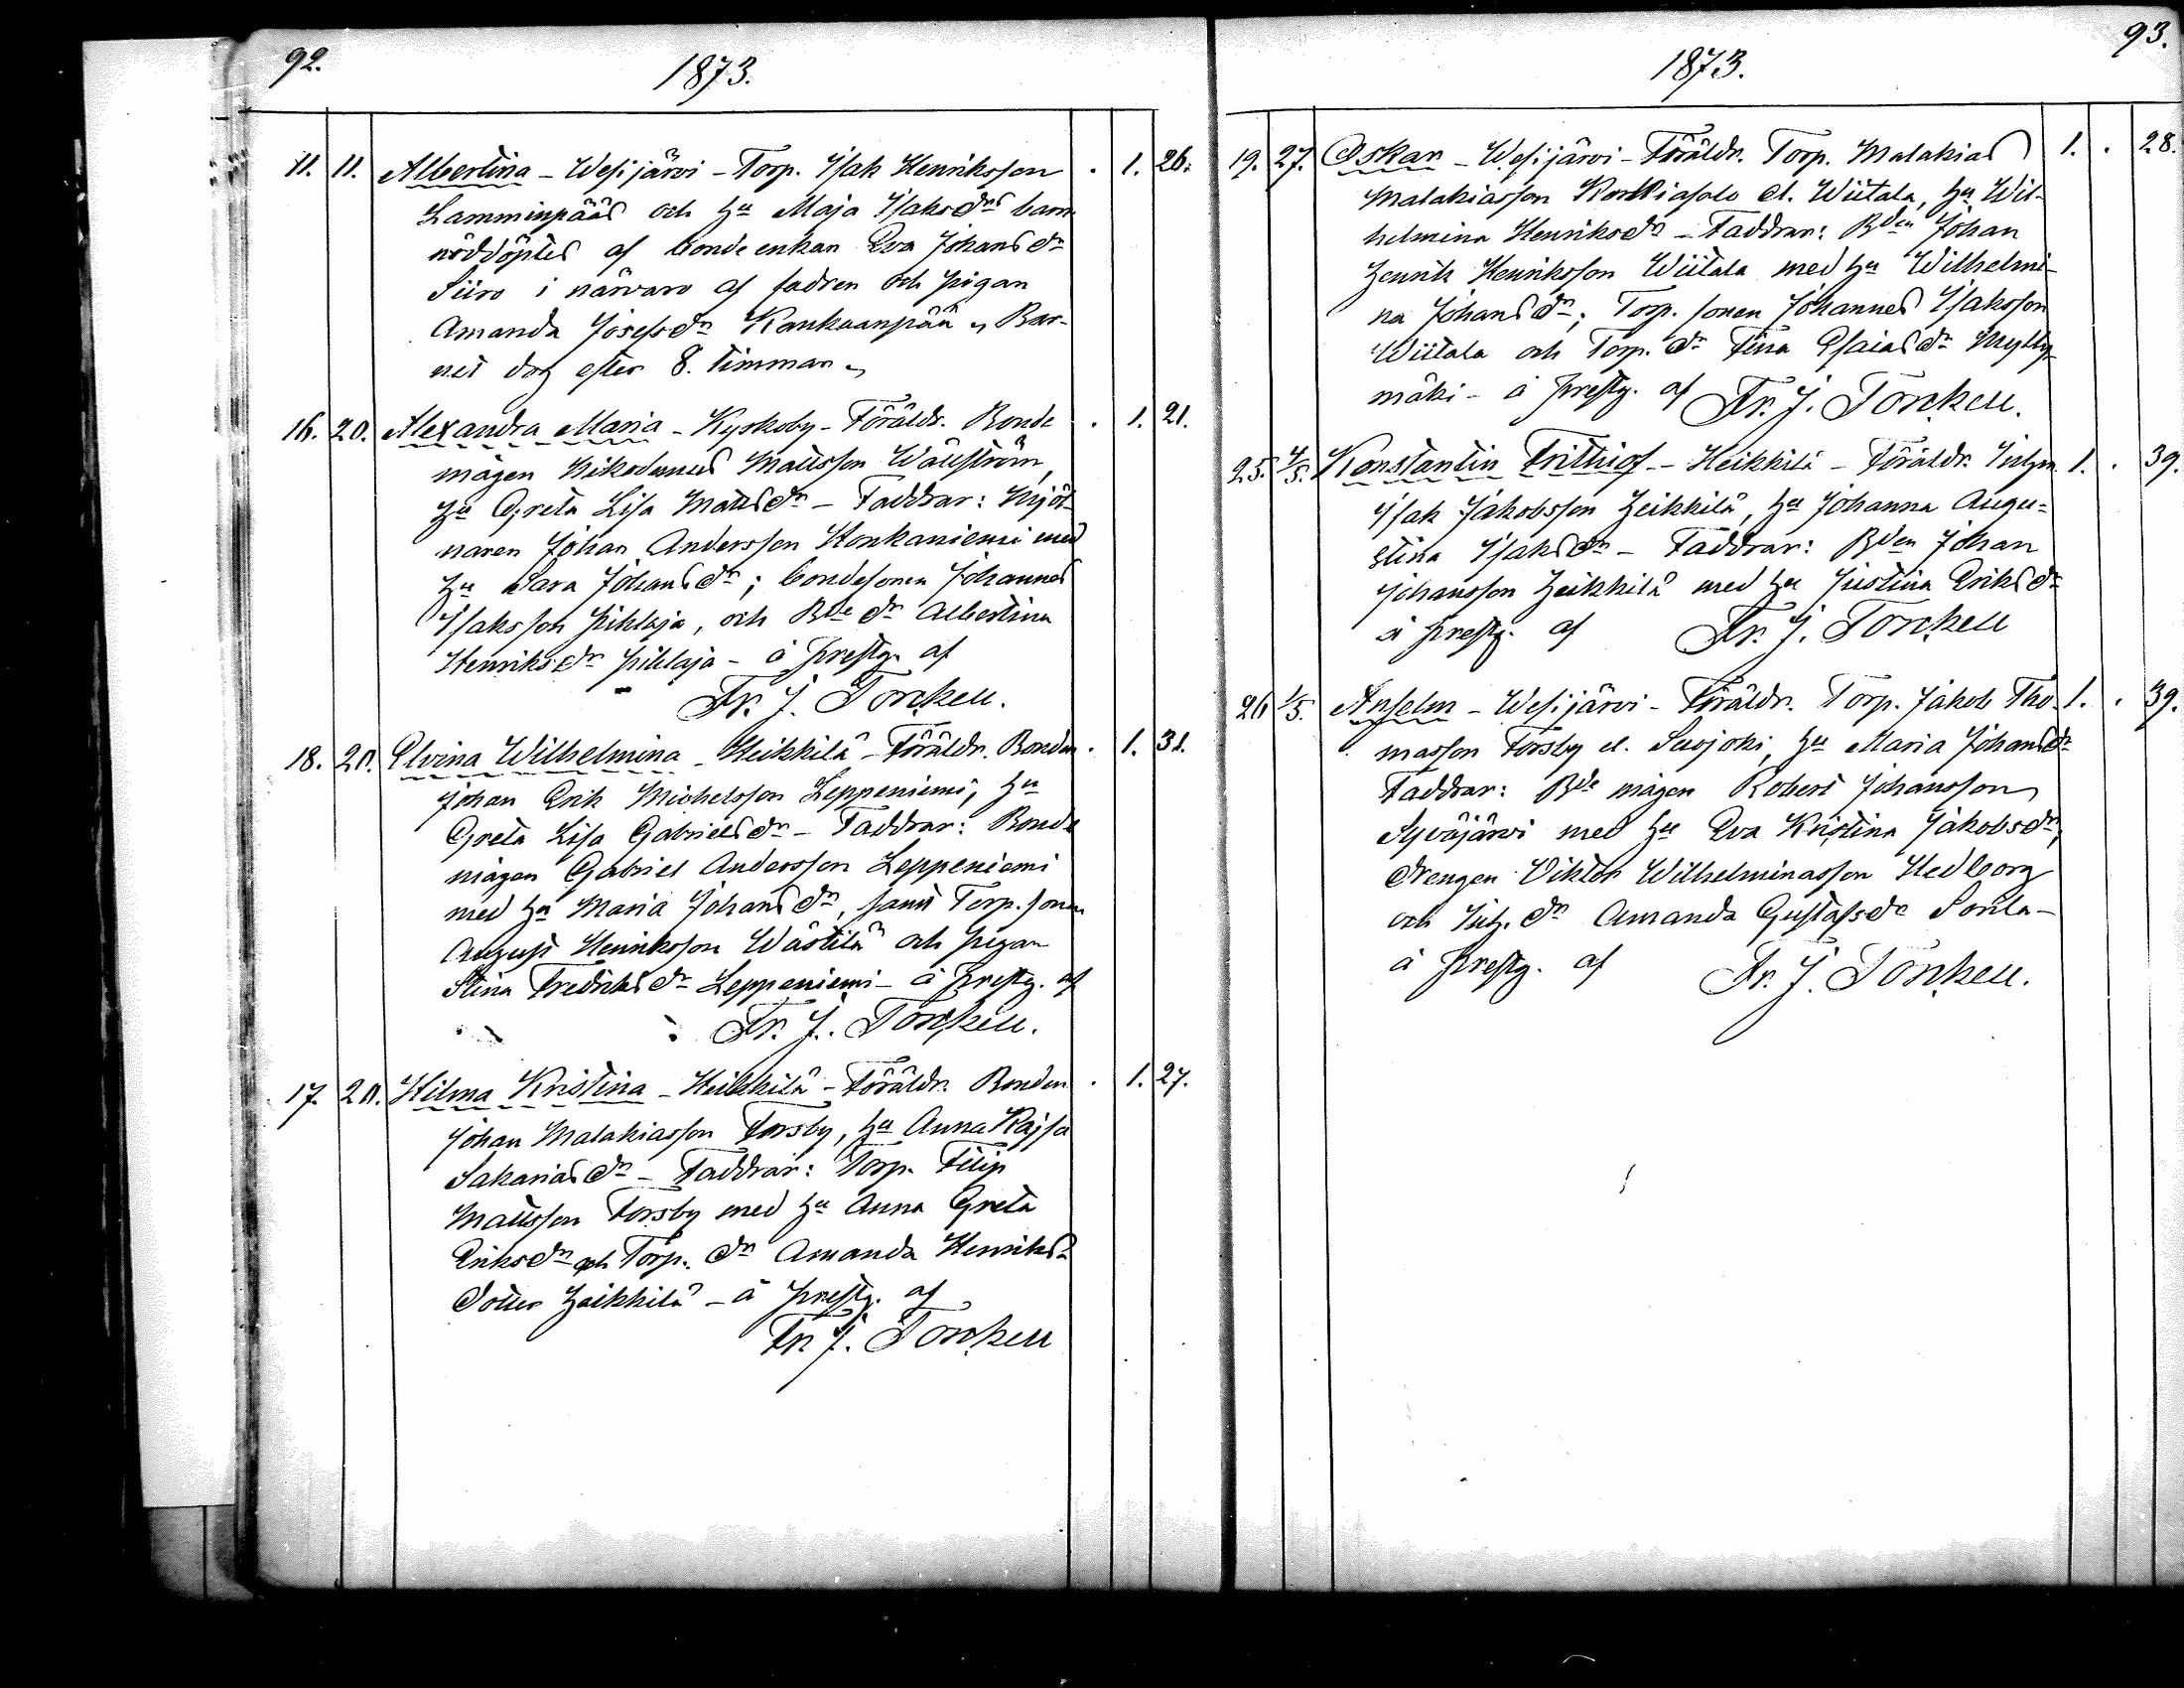 92.
1873.
11. 11. Albertina - Wesijärvi - Torp. Isak Henriksson . 1. 26.
Lamminpääs och Hu Maja Isaksdrs barn
nöddöptes af bonde enkan Eva Johansdr
Siiro i närvaro af fadren och pigan
Amanda Josefsdr Kankaanpää, Bar-
net dog efter 8. timmar
16. 20. Alexandra Maria - Kyrkoby - Föräldr. Bonde . 1. 21.
mågen Nikodemus Mattsson Wällström,
Hu Greta Lisa Mattsdr - Faddrar: Mjöl-
naren Johan Andersson Honkaniemi med
Hu Sara Johansdr; bondesonen Johannes
Isaksson Pihlaja, och Bde dr Albertina
Henriksdr Pihlaja - å prestg. af
Fr. J. Torckell.
18. 20. Elvina Wilhelmina - Heikkilä - Föräldr. Bonden . 1. 31.
Johan Erik Michelsson Leppeniemi, Hu
Greta Lisa Gabrielsdr - Faddrar: Bonde
mågen Gabriel Andersson Leppeniemi
med Hu Maria Johansdr, samt Torp. sonen
August Henriksson Wästilä och pigan
Stina Fredriksdr Leppeniemi - å prestg. af
Fr. J. Torckell.
17. 20. Hilma Kristina - Heikkilä - Föräldr. Bonden . 1. 27.
Johan Malakiasson Forsby, Hu Anna Kajsa
Sakariasdr - Faddrar: Torp. Filip
Mattsson Forsby med Hu Anna Greta
Eriksdr och Torp. dr Amanda Henriks-
dotter Heikkilä - å prestg. af
Fr. J. Torckell
93.
1873.
19. 27. Oskar - Wesijärvi - Föräldr. Torp. Malakias 1. . 28.
Malakiasson Korkiasalo el. Wiitala, Hu Wil-
helmina Henriksdr - Faddrar: Bden Johan
Henrik Henriksson Wiitala med Hu Wilhelmi-
na Johansdr; Torp. sonen Johannes Isaksson
Wiitala och Torp. dr Fina Esaiasdr Mylly-
mäki - å prestg. af Fr. J. Torckell.
25. 4/5. Konstantin Frithiof - Heikkilä - Föräldr. Inhm. 1. . 39.
Isak Jakobsson Heikkilä, Hu Johanna Augu-
stina Isaksdr - Faddrar: Bden Johan
Johansson Heikkilä med Hu Justina Eriksdr
å prestg. af Fr. J. Torckell
26 1/5. Anselm - Wesijärvi - Föräldr. Torp. Jakob Tho- 1. . 39.
masson Forsby el. Susjoki, Hu Maria Johansdr
Faddrar: Bde mågen Robert Johansson
Syväjärvi med Hu Eva Kristina Jakobsdr,
drengen Viktor Wilhelminasson Hedborg
och Inh. dr Amanda Gustafsdr Sorila -
å prestg. af Fr. J. Torckell.